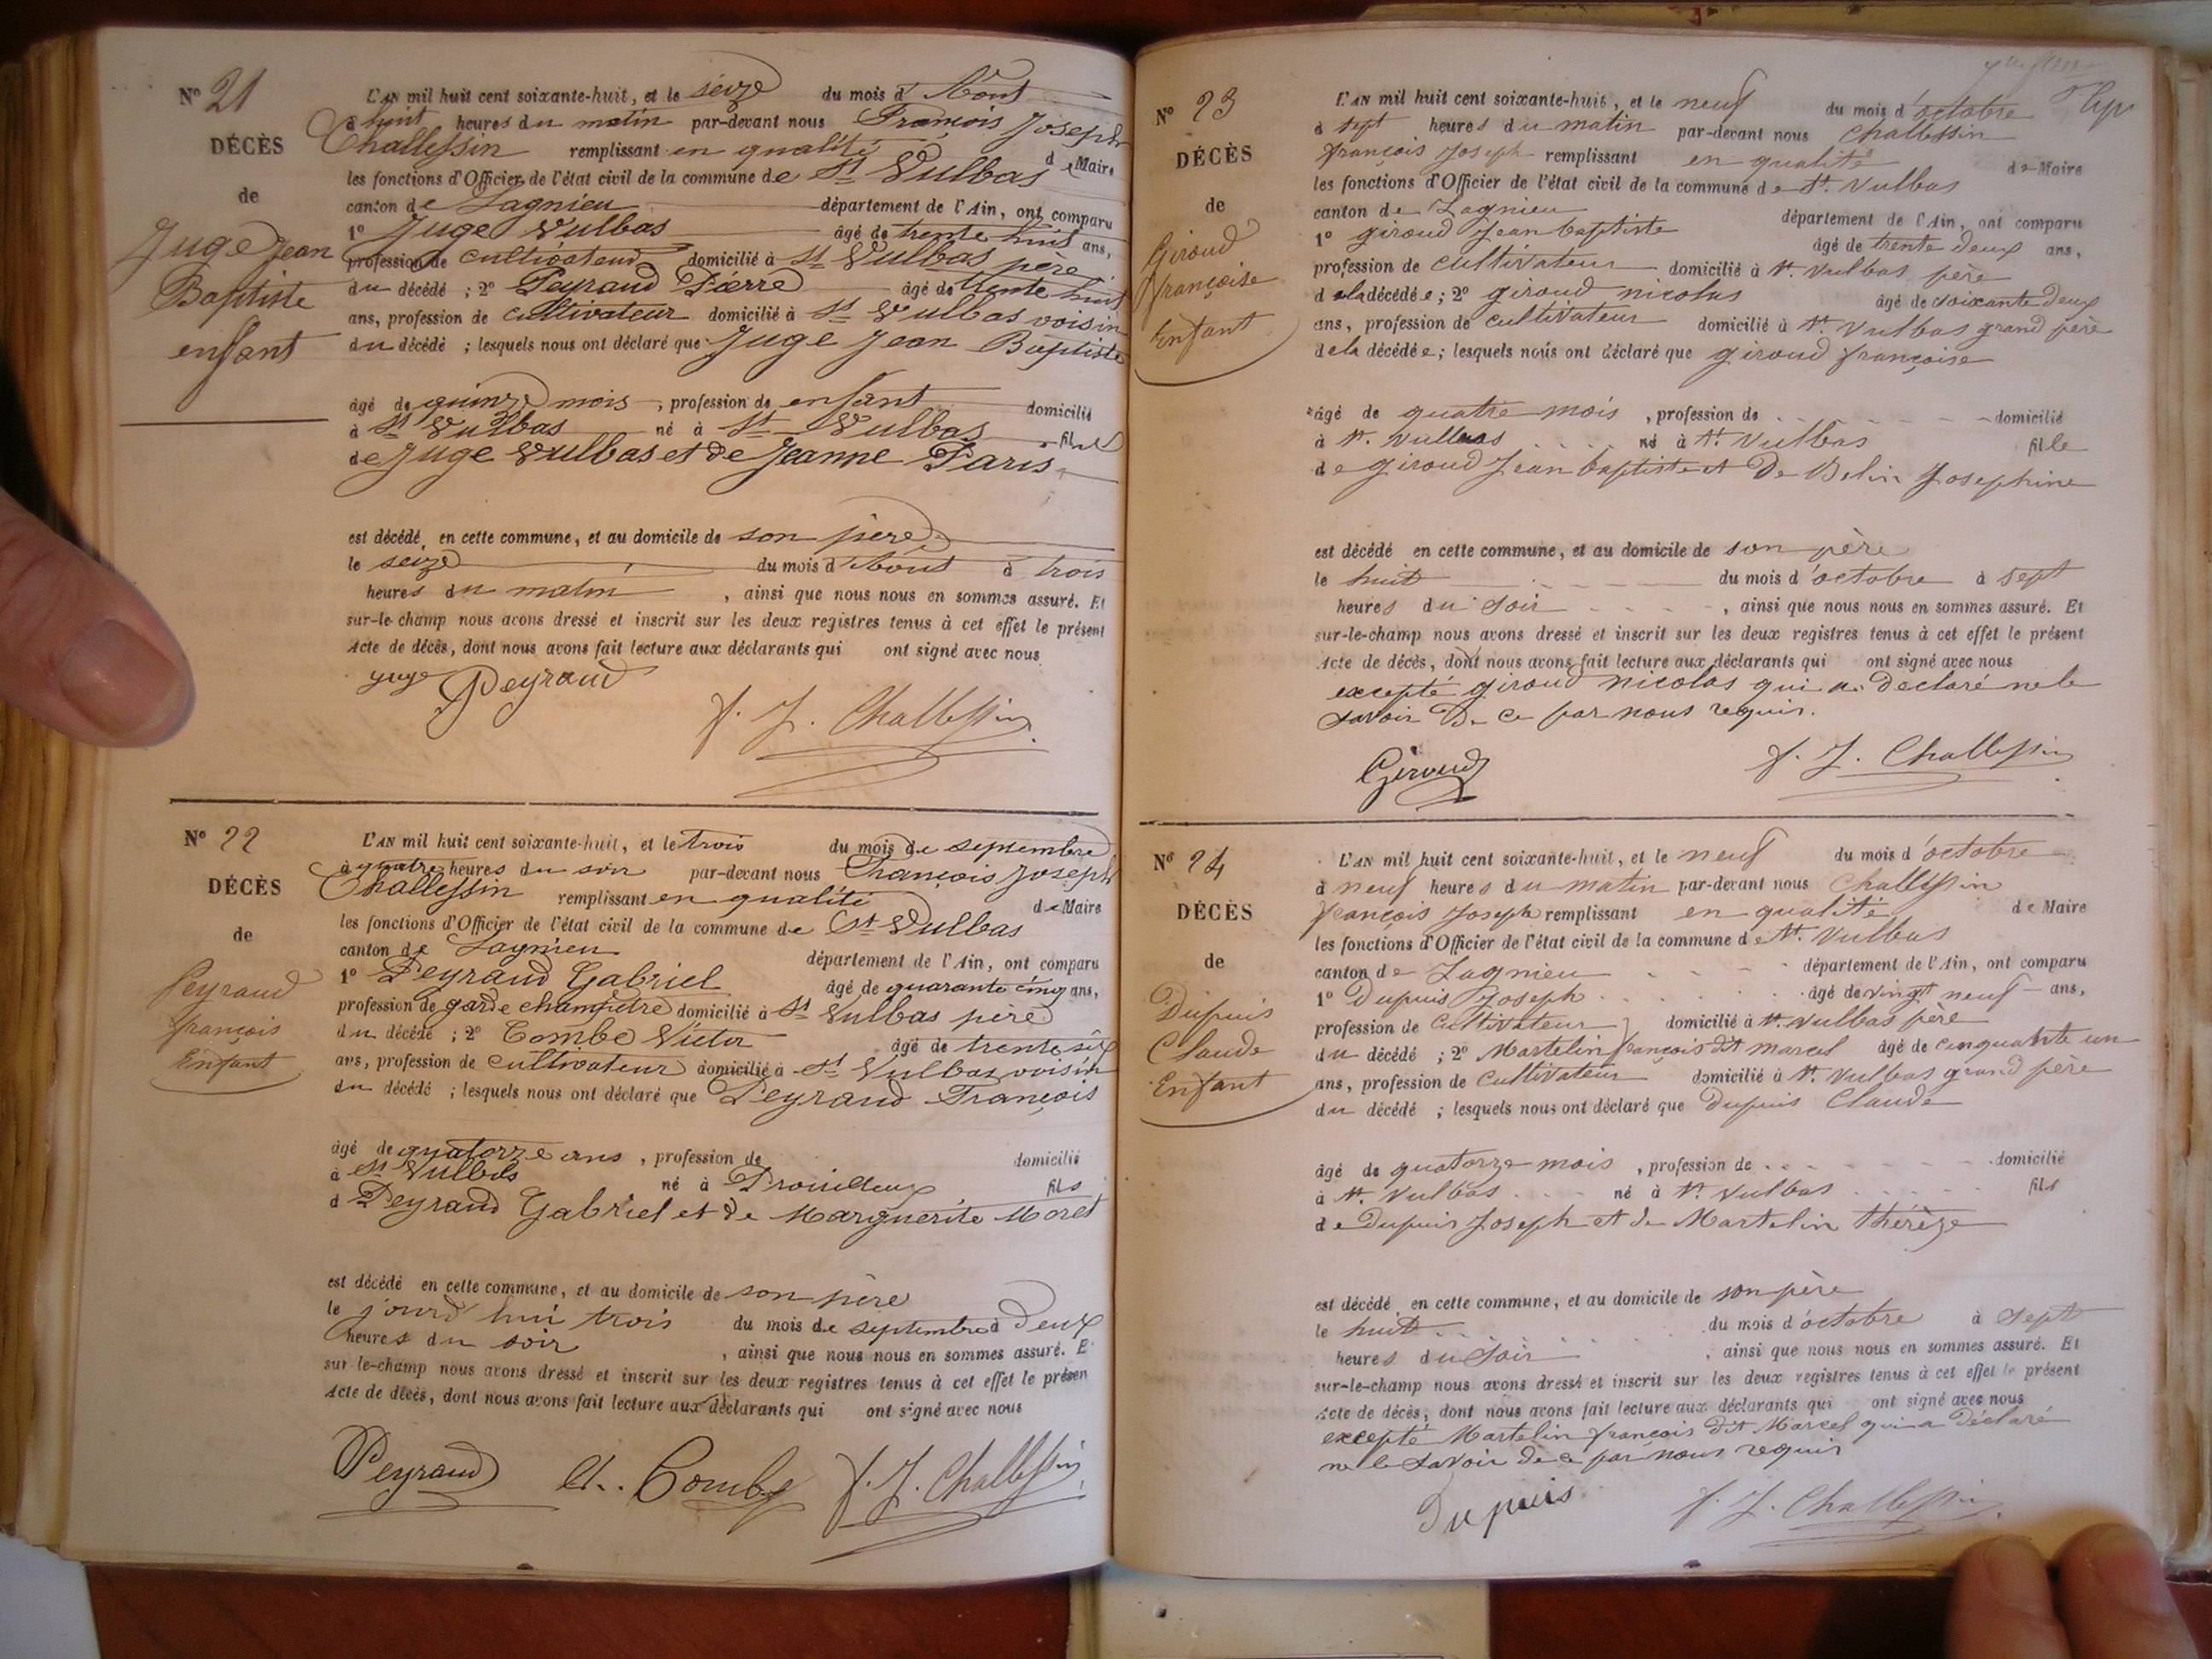 N° 21
DÉCÈS
de
Juge Jean
Baptiste
enfant
L'AN mil huit cent soixante-huit, et le seize du mois d'Août
à huit heures du matin par-devant nous François Joseph
Challessin remplissant en qualité de Maire
les fonctions d'Officier de l'état civil de la commune de St Vulbas
canton de Lagnieu département de l'Ain, ont comparu
1° Juge Vulbas âgé de trente huit ans,
profession de cultivateur domicilié à St Vulbas père
du décédé ; 2° Peyraud Pierre âgé de trente huit
ans, profession de cultivateur domicilié à St Vulbas voisin
du décédé ; lesquels nous ont déclaré que Juge Jean Baptiste
âgé de quinze mois, profession de enfant domicilié
à St Vulbas né à St Vulbas fils
de Juge Vulbas et de Jeanne Paris
est décédé en cette commune, et au domicile de son père
le seize du mois d'Août à trois
heures du matin, ainsi que nous nous en sommes assuré. Et
sur-le-champ nous avons dressé et inscrit sur les deux registres tenus à cet effet le présent
Acte de décès, dont nous avons fait lecture aux déclarants qui ont signé avec nous
juge Peyraud
f. J. Challessin
N° 22
DÉCÈS
de
Peyraud
françois
Enfant
L'AN mil huit cent soixante-huit, et le trois du mois de septembre
à quatre heures du soir par-devant nous François Joseph
Challessin remplissant en qualité de Maire
les fonctions d'Officier de l'état civil de la commune de St Vulbas
canton de Lagnieu département de l'Ain, ont comparu
1° Peyraud Gabriel âgé de quarante cinq ans,
profession de garde champêtre domicilié à St Vulbas père
du décédé ; 2° Combe Victor âgé de trente six
ans, profession de cultivateur domicilié à St Vulbas voisin
du décédé ; lesquels nous ont déclaré que Peyraud François
âgé de quatorze ans, profession de domicilié
à St Vulbas né à Prouilleux fils
d Peyraud Gabriel et de Marguerite Moret
est décédé en cette commune, et au domicile de son père
le jourd'hui trois du mois de septembre à deux
heures du soir, ainsi que nous nous en sommes assuré. E
sur-le-champ nous avons dressé et inscrit sur les deux registres tenus à cet effet le présen
Acte de décès, dont nous avons fait lecture aux déclarants qui ont signé avec nous
Peyraud Combe f. J. Challessin
N° 23
DÉCÈS
de
Giroud
françoise
Enfant
L'AN mil huit cent soixante-huit, et le neuf du mois d'octobre
à sept heures du matin par-devant nous Challessin
françois Joseph remplissant en qualité de Maire
les fonctions d'Officier de l'état civil de la commune de St. Vulbas
canton de Lagnieu département de l'Ain, ont comparu
1° giroud Jean baptiste âgé de trente deux ans,
profession de cultivateur domicilié à St. Vulbas père
de la décédée ; 2° giroud nicolas âgé de soixante deux
ans, profession de cultivateur domicilié à St. Vulbas grand père
de la décédée ; lesquels nous ont déclaré que giroud françoise
âgé de quatre mois, profession de domicilié
à St. Vulbas né à St. Vulbas fille
de giroud Jean baptiste et De Belin Josephine
est décédé en cette commune, et au domicile de son père
le huit du mois d'octobre à sept
heures du soir, ainsi que nous nous en sommes assuré. Et
sur-le-champ nous avons dressé et inscrit sur les deux registres tenus à cet effet le présent
Acte de décès, dont nous avons fait lecture aux déclarants qui ont signé avec nous
excepté giroud nicolas qui a déclaré ne le
savoir De ce par nous requis.
Giroud f. J. Challessin
N° 24
DÉCÈS
de
Dupuis
Claude
Enfant
L'AN mil huit cent soixante-huit, et le neuf du mois d'octobre
à neuf heures du matin par-devant nous Challessin
françois Joseph remplissant en qualité de Maire
les fonctions d'Officier de l'état civil de la commune de St. Vulbas
canton de Lagnieu département de l'Ain, ont comparu
1° Dupuis Joseph âgé de vingt neuf ans,
profession de cultivateur domicilié à St. Vulbas père
du décédé ; 2° Martelin françois dit marcel âgé de cinquante un
ans, profession de cultivateur domicilié à St. Vulbas grand père
du décédé ; lesquels nous ont déclaré que Dupuis Claude
âgé de quatorze mois, profession de domicilié
à St. Vulbas né à St. Vulbas fils
de Dupuis Joseph et de Martelin thérèze
est décédé en cette commune, et au domicile de son père
le huit du mois d'octobre à sept
heures du soir, ainsi que nous nous en sommes assuré. Et
sur-le-champ nous avons dressé et inscrit sur les deux registres tenus à cet effet le présent
Acte de décès, dont nous avons fait lecture aux déclarants qui ont signé avec nous
excepté Martelin françois dit Marcel qui a Déclaré
ne le savoir de ce par nous requis
Dupuis f. J. Challessin